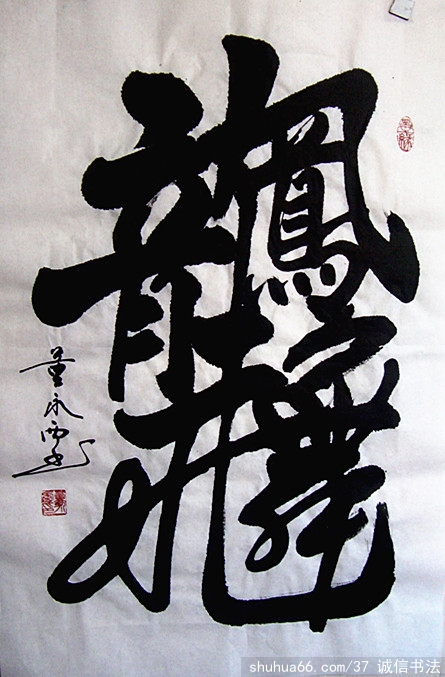 龍飛
鳳舞
董永
shuhua66.com/37 诚信书法